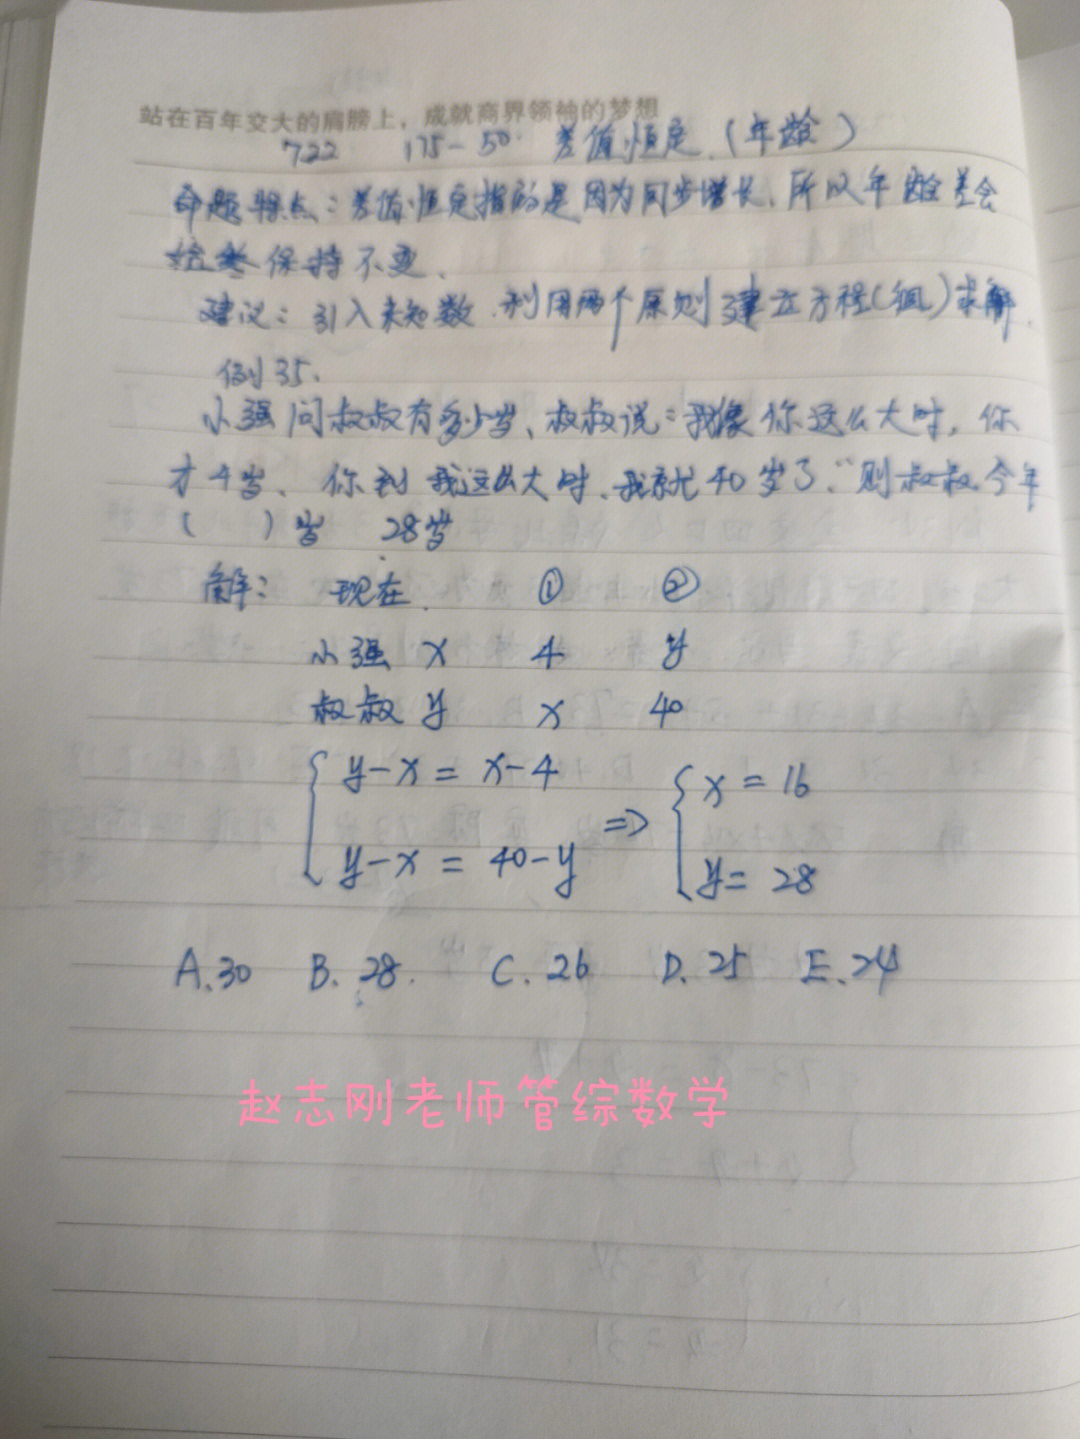 站在百年交大的肩膀上，成就商界领袖的梦想
722 175-50 差值恒定.(年龄)
命题特点：差值恒定指的是因为同步增长、所以年龄差会
始终保持不变、
建议：引入未知数.利用两个原则建立方程(组)求解.
例35.
小强问叔叔有多少岁、叔叔说："我像你这么大时，你
才4岁、你到我这么大时、我就40岁了、"则叔叔今年
( )岁 28岁
解： 现在. ① ②
小强 x 4 y
叔叔 y x 40
y-x = x-4
x = 16
⇒
y-x = 40-y
y = 28
A.30 B.28. C.26 D.25 E.24
赵志刚老师管综数学